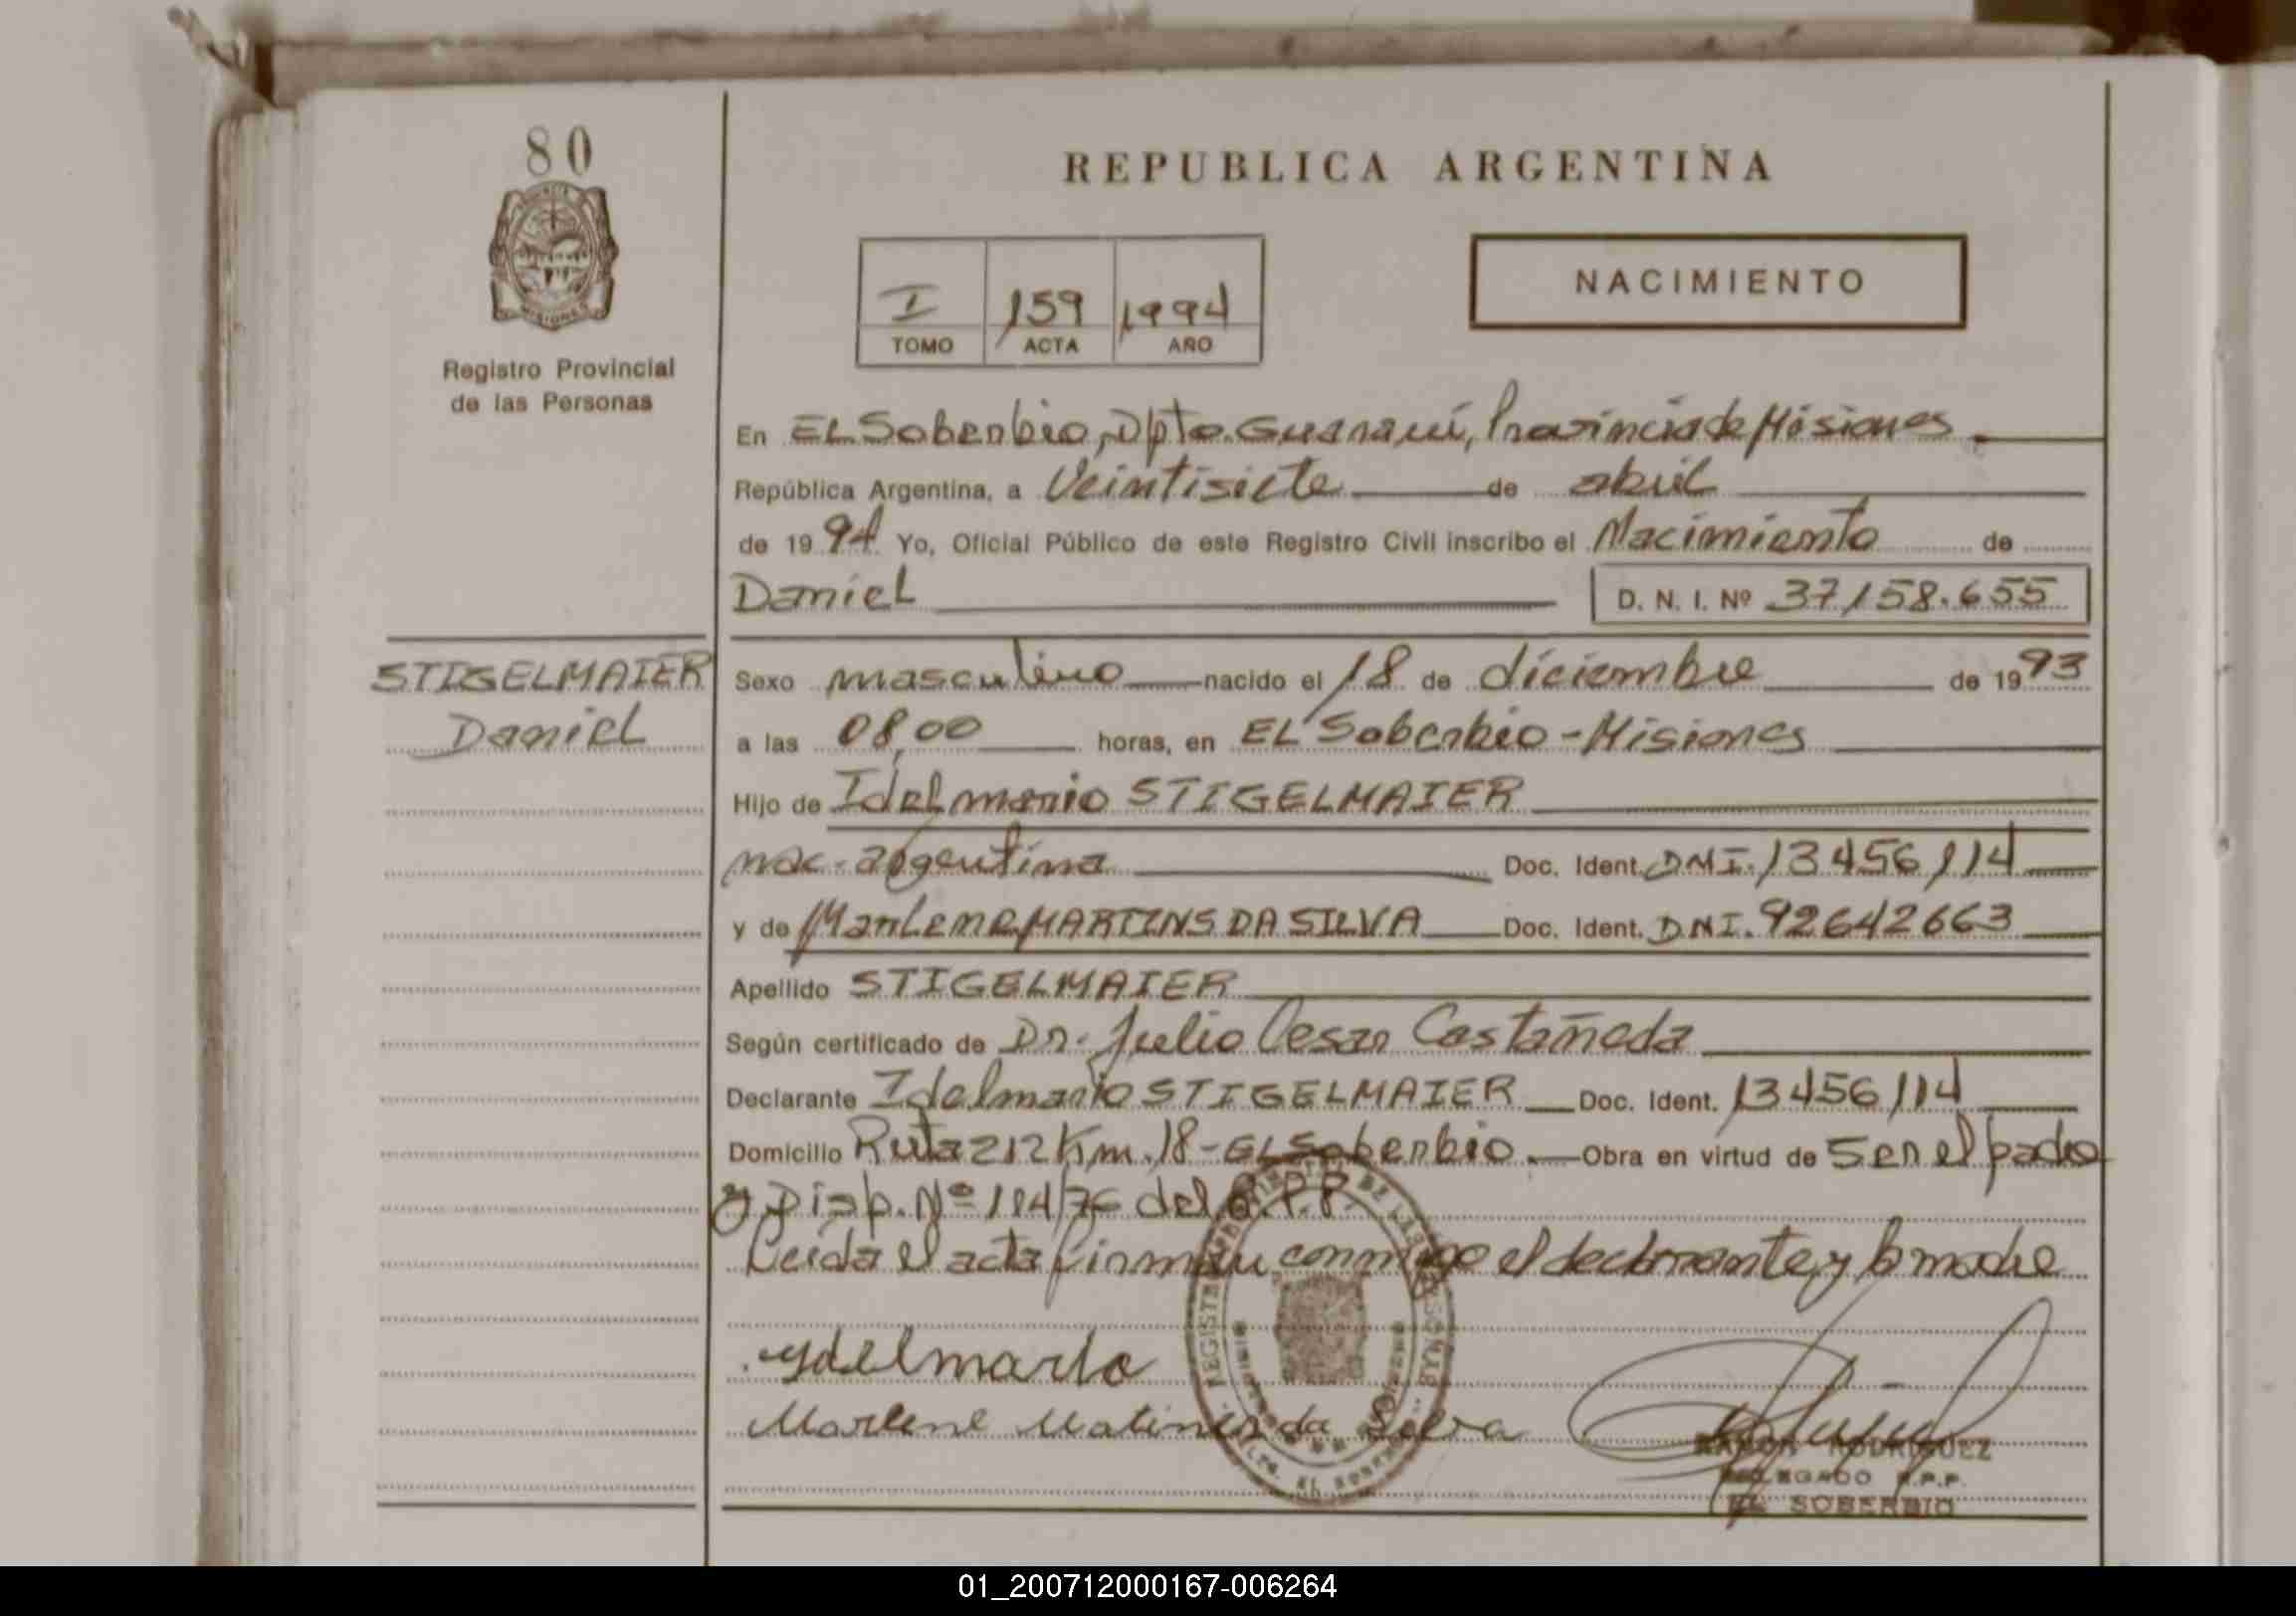 80
Registro Provincial
de las Personas
STIGELMAIER
Daniel
REPUBLICA ARGENTINA
I 159 1994
TOMO ACTA AÑO
NACIMIENTO
En EL Soberbio, Dpto. Guaraní, Provincia de Misiones
República Argentina, a Veintisiete de abril
de 1994 Yo, Oficial Público de este Registro Civil inscribo el Nacimiento de
Daniel D. N. I. Nº 37158.655
Sexo masculino nacido el 18 de diciembre de 1993
a las 08,00 horas, en EL Soberbio - Misiones
Hijo de Idelmario STIGELMAIER
nac. argentina Doc. Ident. DNI. 13456114
y de Marlene MARTINS DA SILVA Doc. Ident. DNI. 92642663
Apellido STIGELMAIER
Según certificado de Dr. Julio Cesar Castañeda
Declarante Idelmario STIGELMAIER Doc. Ident. 13456114
Domicilio Ruta 212 Km. 18 - EL Soberbio. Obra en virtud de Ser el padre
y Disp. Nº 114/76 del R.P.P.
Leída el acta firman conmigo el declarante y la madre
Marlene da Silva
RAMON RODRIGUEZ
DELEGADO R.P.P.
EL SOBERBIO
01_200712000167-006264